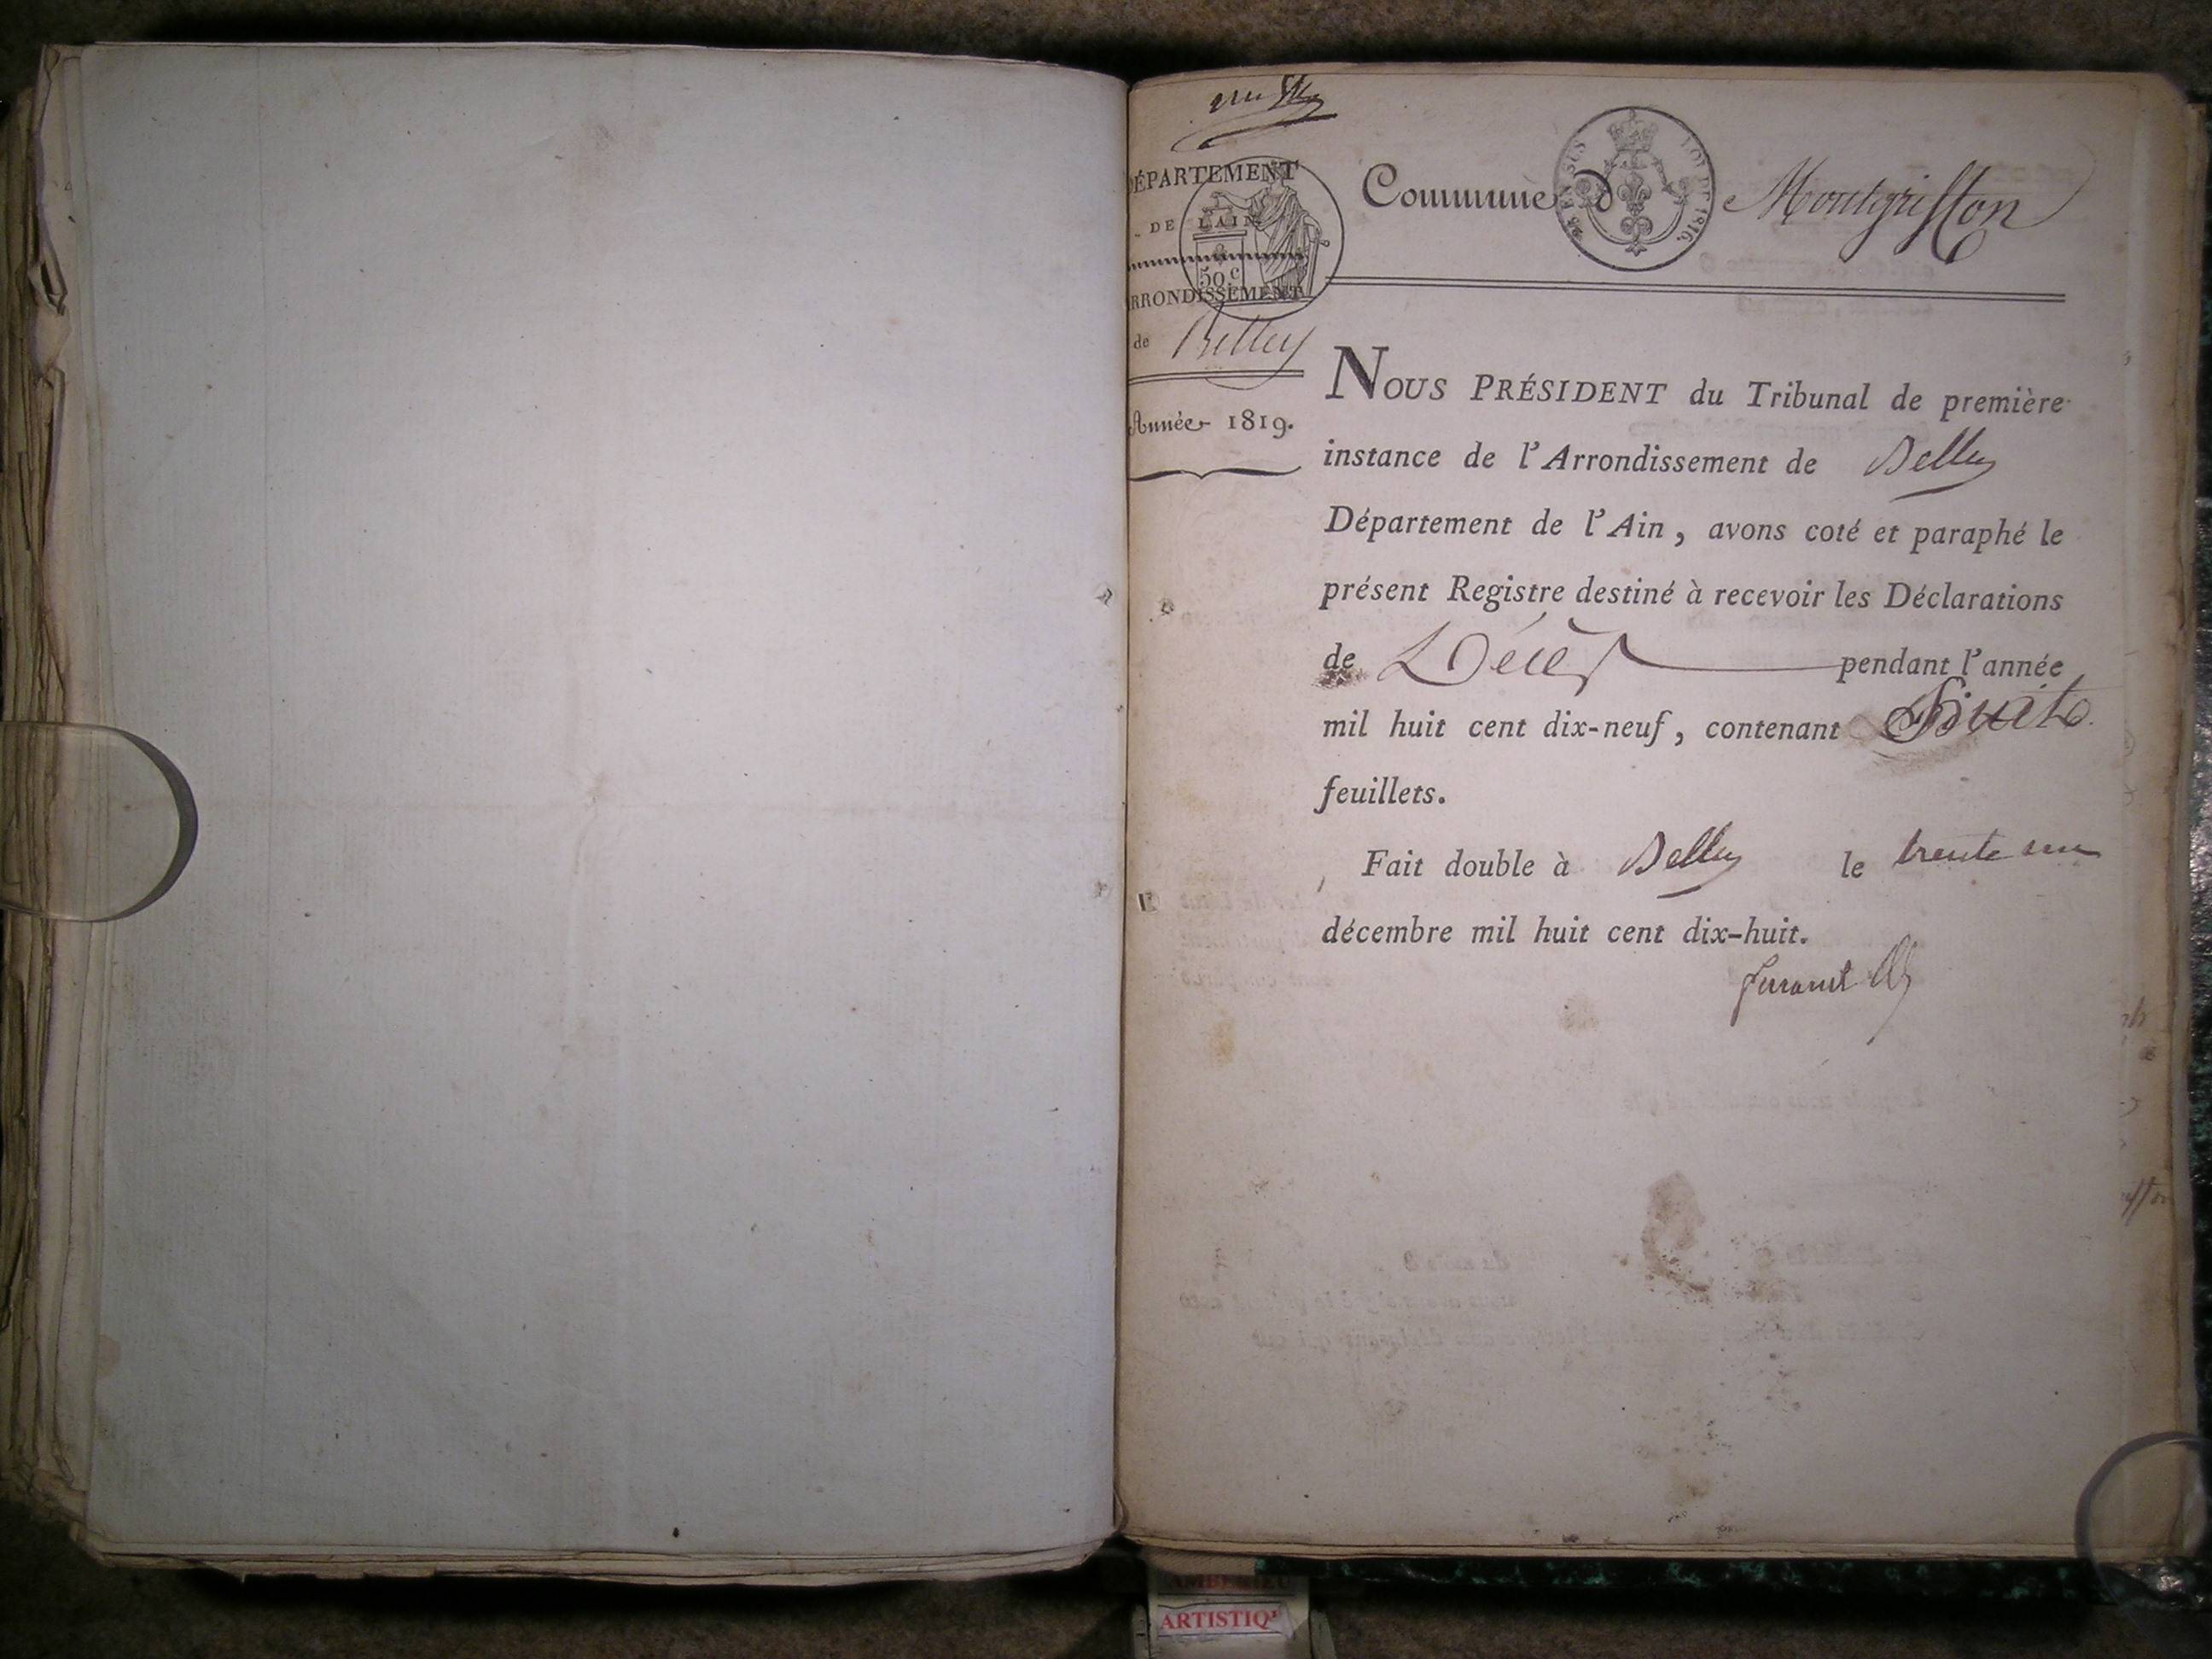 DÉPARTEMENT
DE L'AIN
50 c
ARRONDISSEMENT
de Belley
Année 1819.
Commune de Montgriffon
EN SUS
LOI DE 1816.
NOUS PRÉSIDENT du Tribunal de première
instance de l'Arrondissement de Belley
Département de l'Ain, avons coté et paraphé le
présent Registre destiné à recevoir les Déclarations
de Décès pendant l'année
mil huit cent dix-neuf, contenant
feuillets.
Fait double à Belley le trente un
décembre mil huit cent dix-huit.
ARTISTIQ